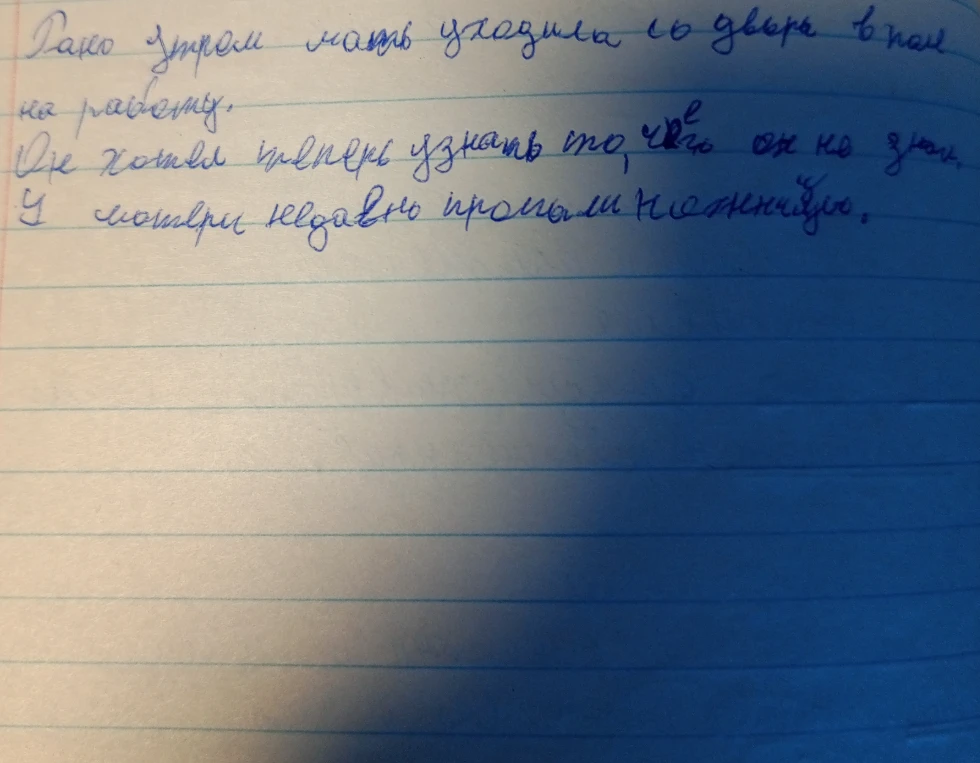 Рано утром мать уходила со двора в поле
на работу.
Он хотел теперь узнать то, чего он не знал.
У матери недавно пропали ножницы.